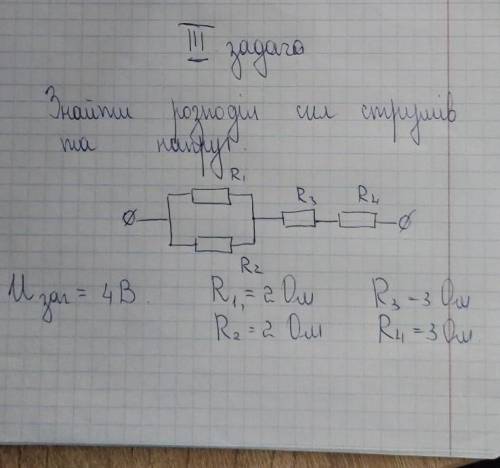 III
задача
Знайти розподіл сил струмів
та напруг.
R₁
R₃ R₄
R₂
Uзаг = 4В. R₁ = 2 Ом R₃ - 3 Ом
R₂ = 2 Ом R₄ = 3 Ом